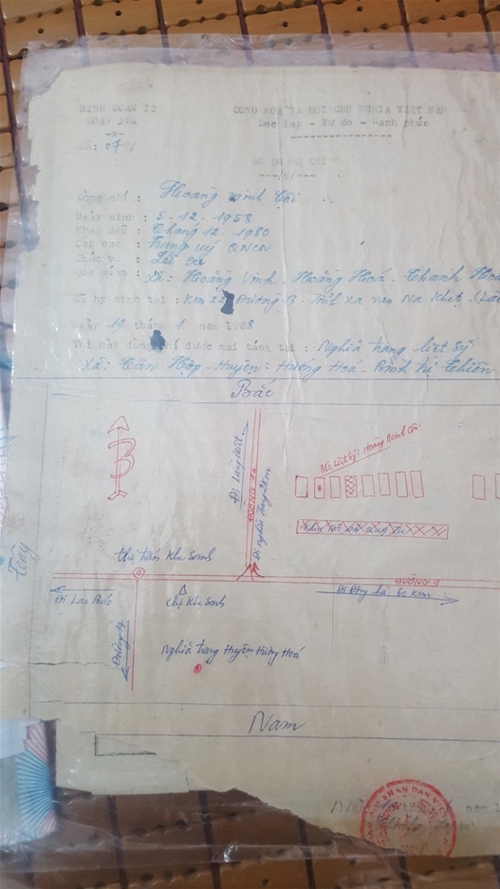 BINH ĐOÀN 12
ĐOÀN 384
CỘNG HÒA XÃ HỘI CHỦ NGHĨA VIỆT NAM
Độc lập - Tự do - Hạnh phúc
Số: 07
SƠ ĐỒ MỘ CHÍ
Đồng chí : Hoàng Minh Cội
Ngày sinh : 5-12-1958
Nhập ngũ : Tháng 12-1980
Cấp bậc : Trung uý QNCN
Chức vụ : Lái xe
Xã: Hoằng Vinh - Hoằng Hoá - Thanh Hoá
Đã hy sinh tại : Km 22 Đường B - Tỉnh Xa Van Na Khẹt - (Lào
Ngày 19 tháng 1. năm 1988
Thi hài đồng chí được mai táng tại : Nghĩa trang liệt sỹ
Xã: Tân Hợp - Huyện: Hướng Hoá - Bình Trị Thiên
Bắc
B
Đi Làng Vây
ĐƯỜNG 14
Đi nghĩa trang 2km
Mộ liệt sỹ: Hoàng Minh Cội
Tây
thị trấn Khe Sanh
ĐƯỜNG 9
Đi Lao Bảo
chợ Khe Sanh
Đi Đông Hà 60 Km
Nghĩa trang Huyện Hướng Hoá
Nam